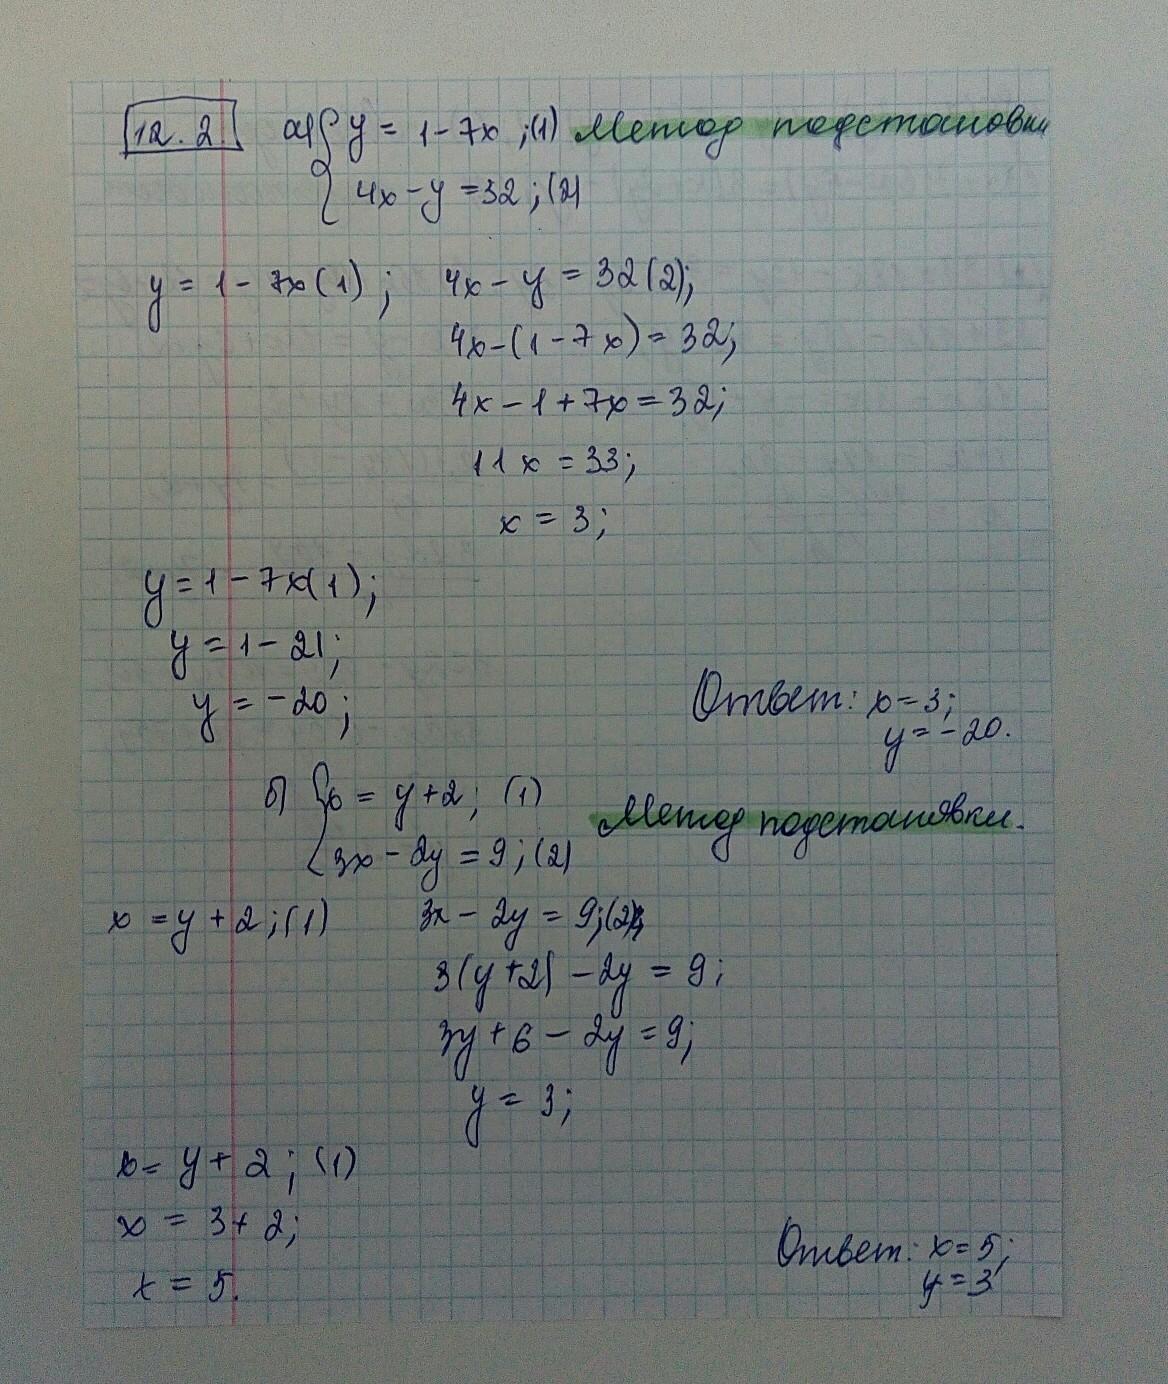 12.2. а) { y = 1 - 7x ; (1) Метод подстановки
4x - y = 32 ; (2)
y = 1 - 7x (1) ; 4x - y = 32 (2);
4x - (1 - 7x) = 32;
4x - 1 + 7x = 32;
11x = 33;
x = 3;
y = 1 - 7x (1);
y = 1 - 21;
y = -20;
Ответ: x = 3;
y = -20.
б) { x = y + 2; (1)
Метод подстановки.
3x - 2y = 9; (2)
x = y + 2; (1) 3x - 2y = 9; (2)
3(y + 2) - 2y = 9;
3y + 6 - 2y = 9;
y = 3;
x = y + 2; (1)
x = 3 + 2;
x = 5.
Ответ: x = 5;
y = 3